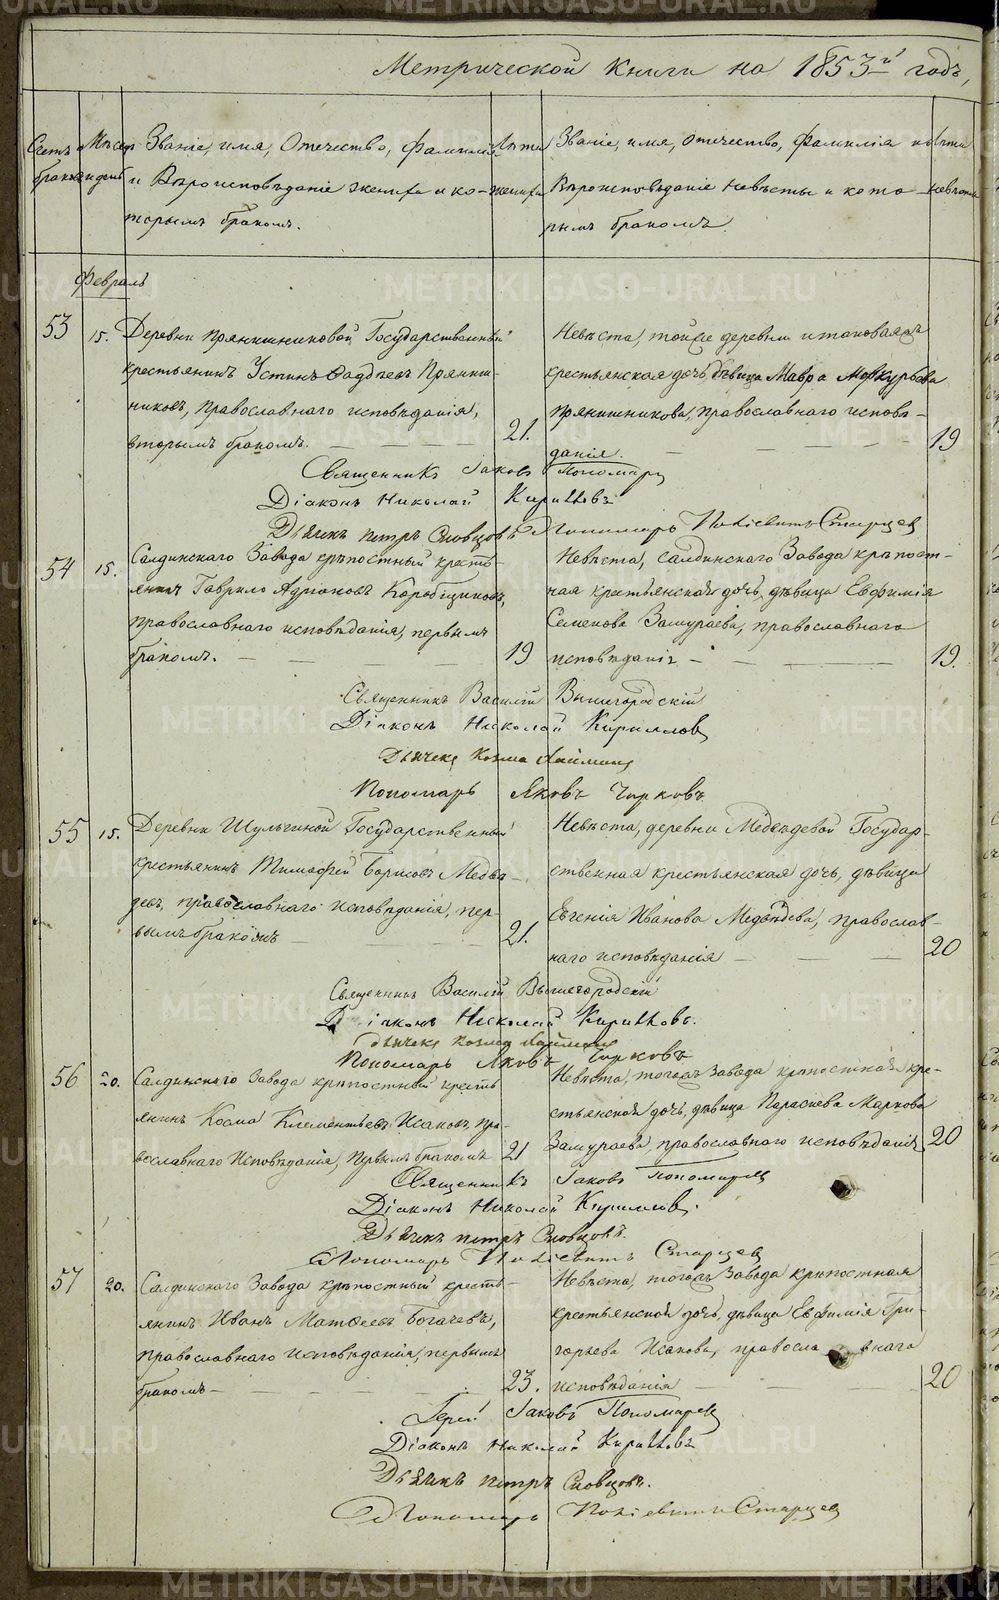 Метрической Книги на 1853й годъ,
Счетъ браковъ
Мѣсяцъ и день
Званіе, имя, Отечество, фамилія
и Вѣроисповѣданіе жениха и ко-
торымъ бракомъ.
Лѣта жениха
Званіе, имя, отчество, фамилія и
Вѣроисповѣданіе невѣсты и кото-
рымъ бракомъ.
Лѣта невѣсты
Февраль
53
15.
Деревни Прянишниковой Государственный
крестьянинъ Устинъ Фадѣевъ Пряниш-
никовъ, православнаго исповѣданія,
вторымъ бракомъ.
21.
Невѣста, тойже деревни и таковаяжъ
крестьянская дочь, дѣвица Мавра Меркурьева
Прянишникова, православнаго исповѣ-
данія.
19
Священникъ Іаковъ Пономарев
Діаконъ Николай Кирилловъ
Дьячекъ петръ Словцовъ Пономарь Старцев
54
15.
Салдинскаго Завода крѣпостный кресть-
янинъ Гаврило Адріановъ Коробщиковъ,
православнаго исповѣданія, первымъ
бракомъ.
19
Невѣста, Салдинскаго Завода крѣпост-
ная крестьянская дочь, дѣвица Евфимія
Семенова Замураева, православнаго
исповѣданія
19.
Священникъ Василій Вышегородскій
Діаконъ Николай Кириллов
Дьячекъ Козма
Пономарь Яковъ Чирковъ
55
15.
Деревни Шульгиной Государственный
крестьянинъ Тимофей Борисовъ Медвѣ-
девъ, православнаго исповѣданія, пер-
вымъ бракомъ
21.
Невѣста, деревни Медвѣдевой Государ-
ственная крестьянская дочь, дѣвица
Евгенія Иванова Медвѣдева, православ-
наго исповѣданія
20
Священникъ Василій Вышегородскій
Діаконъ Николай Кирилловъ.
Дьячекъ Козма
Пономарь Яковъ Чирковъ
56
20.
Салдинскаго Завода крѣпостный кресть-
янинъ Косма Клементьевъ Исаковъ, пра-
вославнаго Исповѣданія, Первымъ бракомъ
21
Невѣста, тогожъ Завода крѣпостная кре-
стьянская дочь, дѣвица Параскева Маркова
Замураева, православнаго исповѣданія,
20
Священникъ Іаковъ Пономарев
Діаконъ Николай Кириллов.
Дьячекъ петръ Словцовъ.
Пономарь Старцев
57
20.
Салдинскаго Завода крѣпостный кресть-
янинъ Иванъ Матѳеевъ Богачевъ,
православнаго исповѣданія, первымъ
бракомъ
23.
Невѣста, тогожъ Завода крѣпостная
крестьянская дочь, дѣвица Евфимія Гри-
горьева Исакова, православнаго
исповѣданія
20
Іерей Іаковъ Пономарев
Діаконъ Николай Кирилловъ
Дьячекъ петръ Словцовъ.
Пономарь Старцев
METRIKI.GASO-URAL.RU